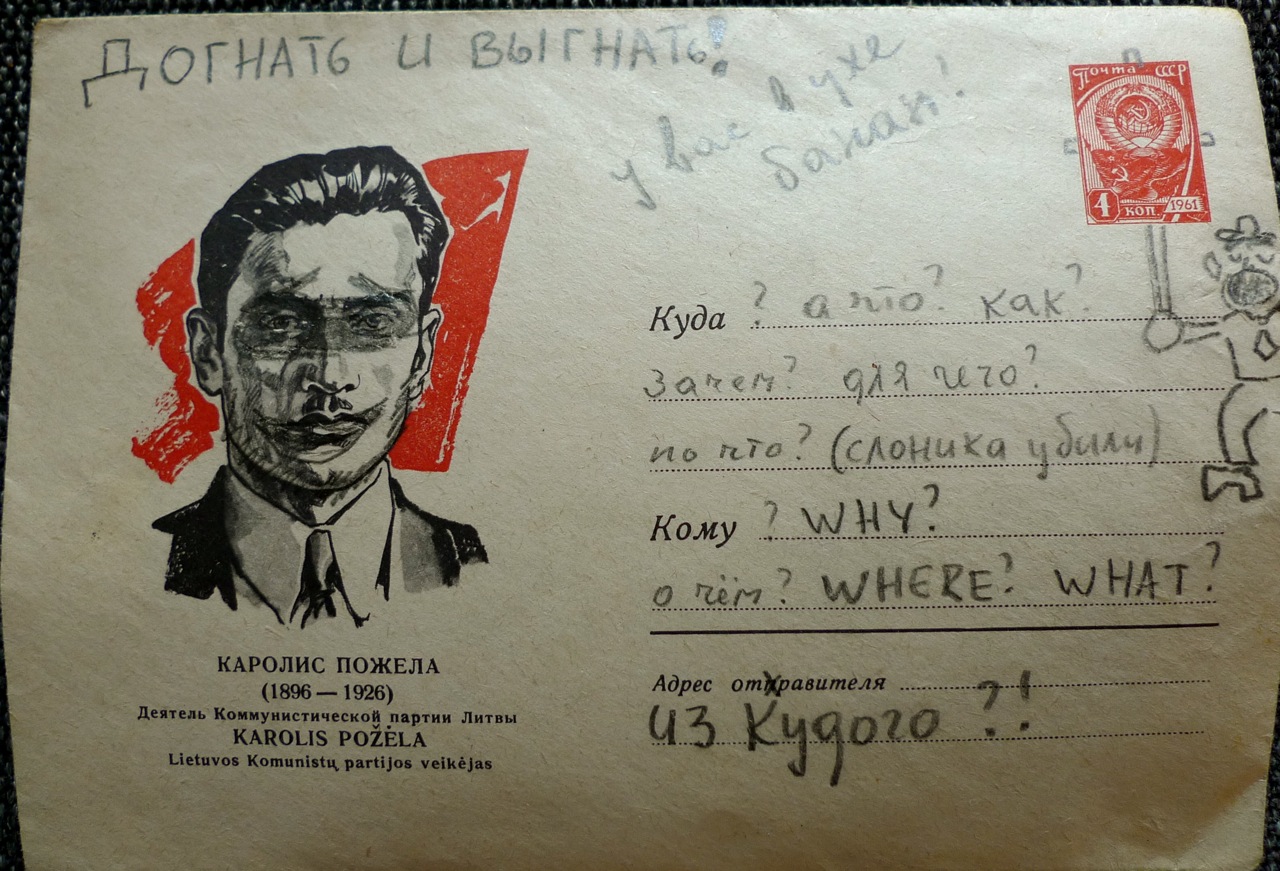 ДОГНАТЬ И ВЫГНАТЬ!
у вас в ухе
банан!
Почта СССР
4 КОП. 1961
Куда ? а что? как?
зачем? для чего?
по что? (слоника убили)
Кому ? WHY?
о чём? WHERE? WHAT?
Адрес отхравителя
ИЗ Худого ?!
КАРОЛИС ПОЖЕЛА
(1896 — 1926)
Деятель Коммунистической партии Литвы
KAROLIS POŽĖLA
Lietuvos Komunistų partijos veikėjas